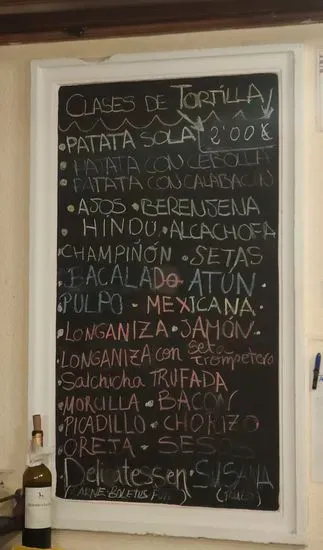 CLASES DE TORTILLA
• PATATA SOLA 2'00 €
• PATATA CON CEBOLLA
• PATATA CON CALABACIN
• AJOS • BERENJENA
HINDU • ALCACHOFA
• CHAMPIÑÓN • SETAS
• BACALADO • ATUN •
PULPO • MEXICANA •
• LONGANIZA • JAMÓN •
• LONGANIZA con seta trompetero
• Salchicha TRUFADA
• MORCILLA • BACON
• PICADILLO • CHORIZO
• OREJA - SESOS
• Delicatessen • SUSANA
CARNE BOLETUS